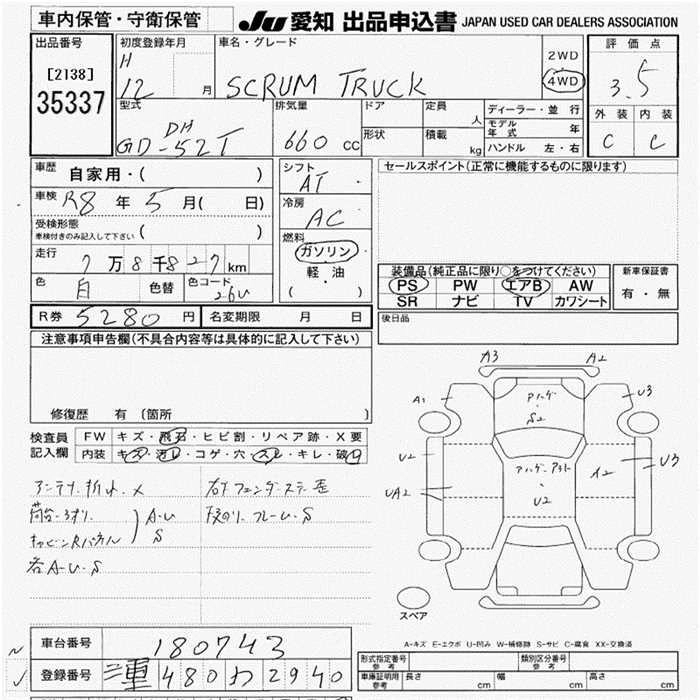 車内保管・守衛保管
JU 愛知 出品申込書 JAPAN USED CAR DEALERS ASSOCIATION
出品番号
[2138]
35337
初度登録年月
H
12 月
車名・グレード
SCRUM TRUCK
2WD
4WD
評価点
3.5
外装 内装
C C
型式
DH
GD-52T
排気量
660 cc
ドア
形状
定員
人
積載
kg
ディーラー・並行
モデル年式 年
ハンドル 左・右
車歴
自家用・( )
車検 R8 年 5 月( 日)
受検形態
車検付きのみ記入して下さい ( )
走行
7万8千827km
色 白 色替 色コード 26U
シフト
AT
冷房
AC
燃料
ガソリン
・
軽油
( )
セールスポイント(正常に機能するものに限ります)
装備品(純正品に限り○をつけてください)
PS PW エアB AW
SR ナビ TV カワシート
新車保証書
有・無
R券 5280 円 名変期限 月 日
後日品
注意事項申告欄(不具合内容等は具体的に記入して下さい)
修復歴 有 〔箇所 〕
検査員
記入欄
FW キズ・飛石・ヒビ割・リペア跡・X要
内装 キズ・汚レ・コゲ・穴・スレ・キレ・破レ
アンテナ折れ×
荷台・アオリ
A・U
S
各A・U・S
右Fフェンダーステー歪
下廻り、フレームS
A3 A2
A1 U3
S2
U2
UA2
U2
A2
U3
スペア
A-キズ E-エクボ U-凹み W-補修跡 S-サビ C-腐食 XX-交換済
車台番号 180743
登録番号 三重 480 わ 2940
形式指定番号 参考
類別区分番号 参考
車庫証明用 参考
長さ cm 幅 cm 高さ cm